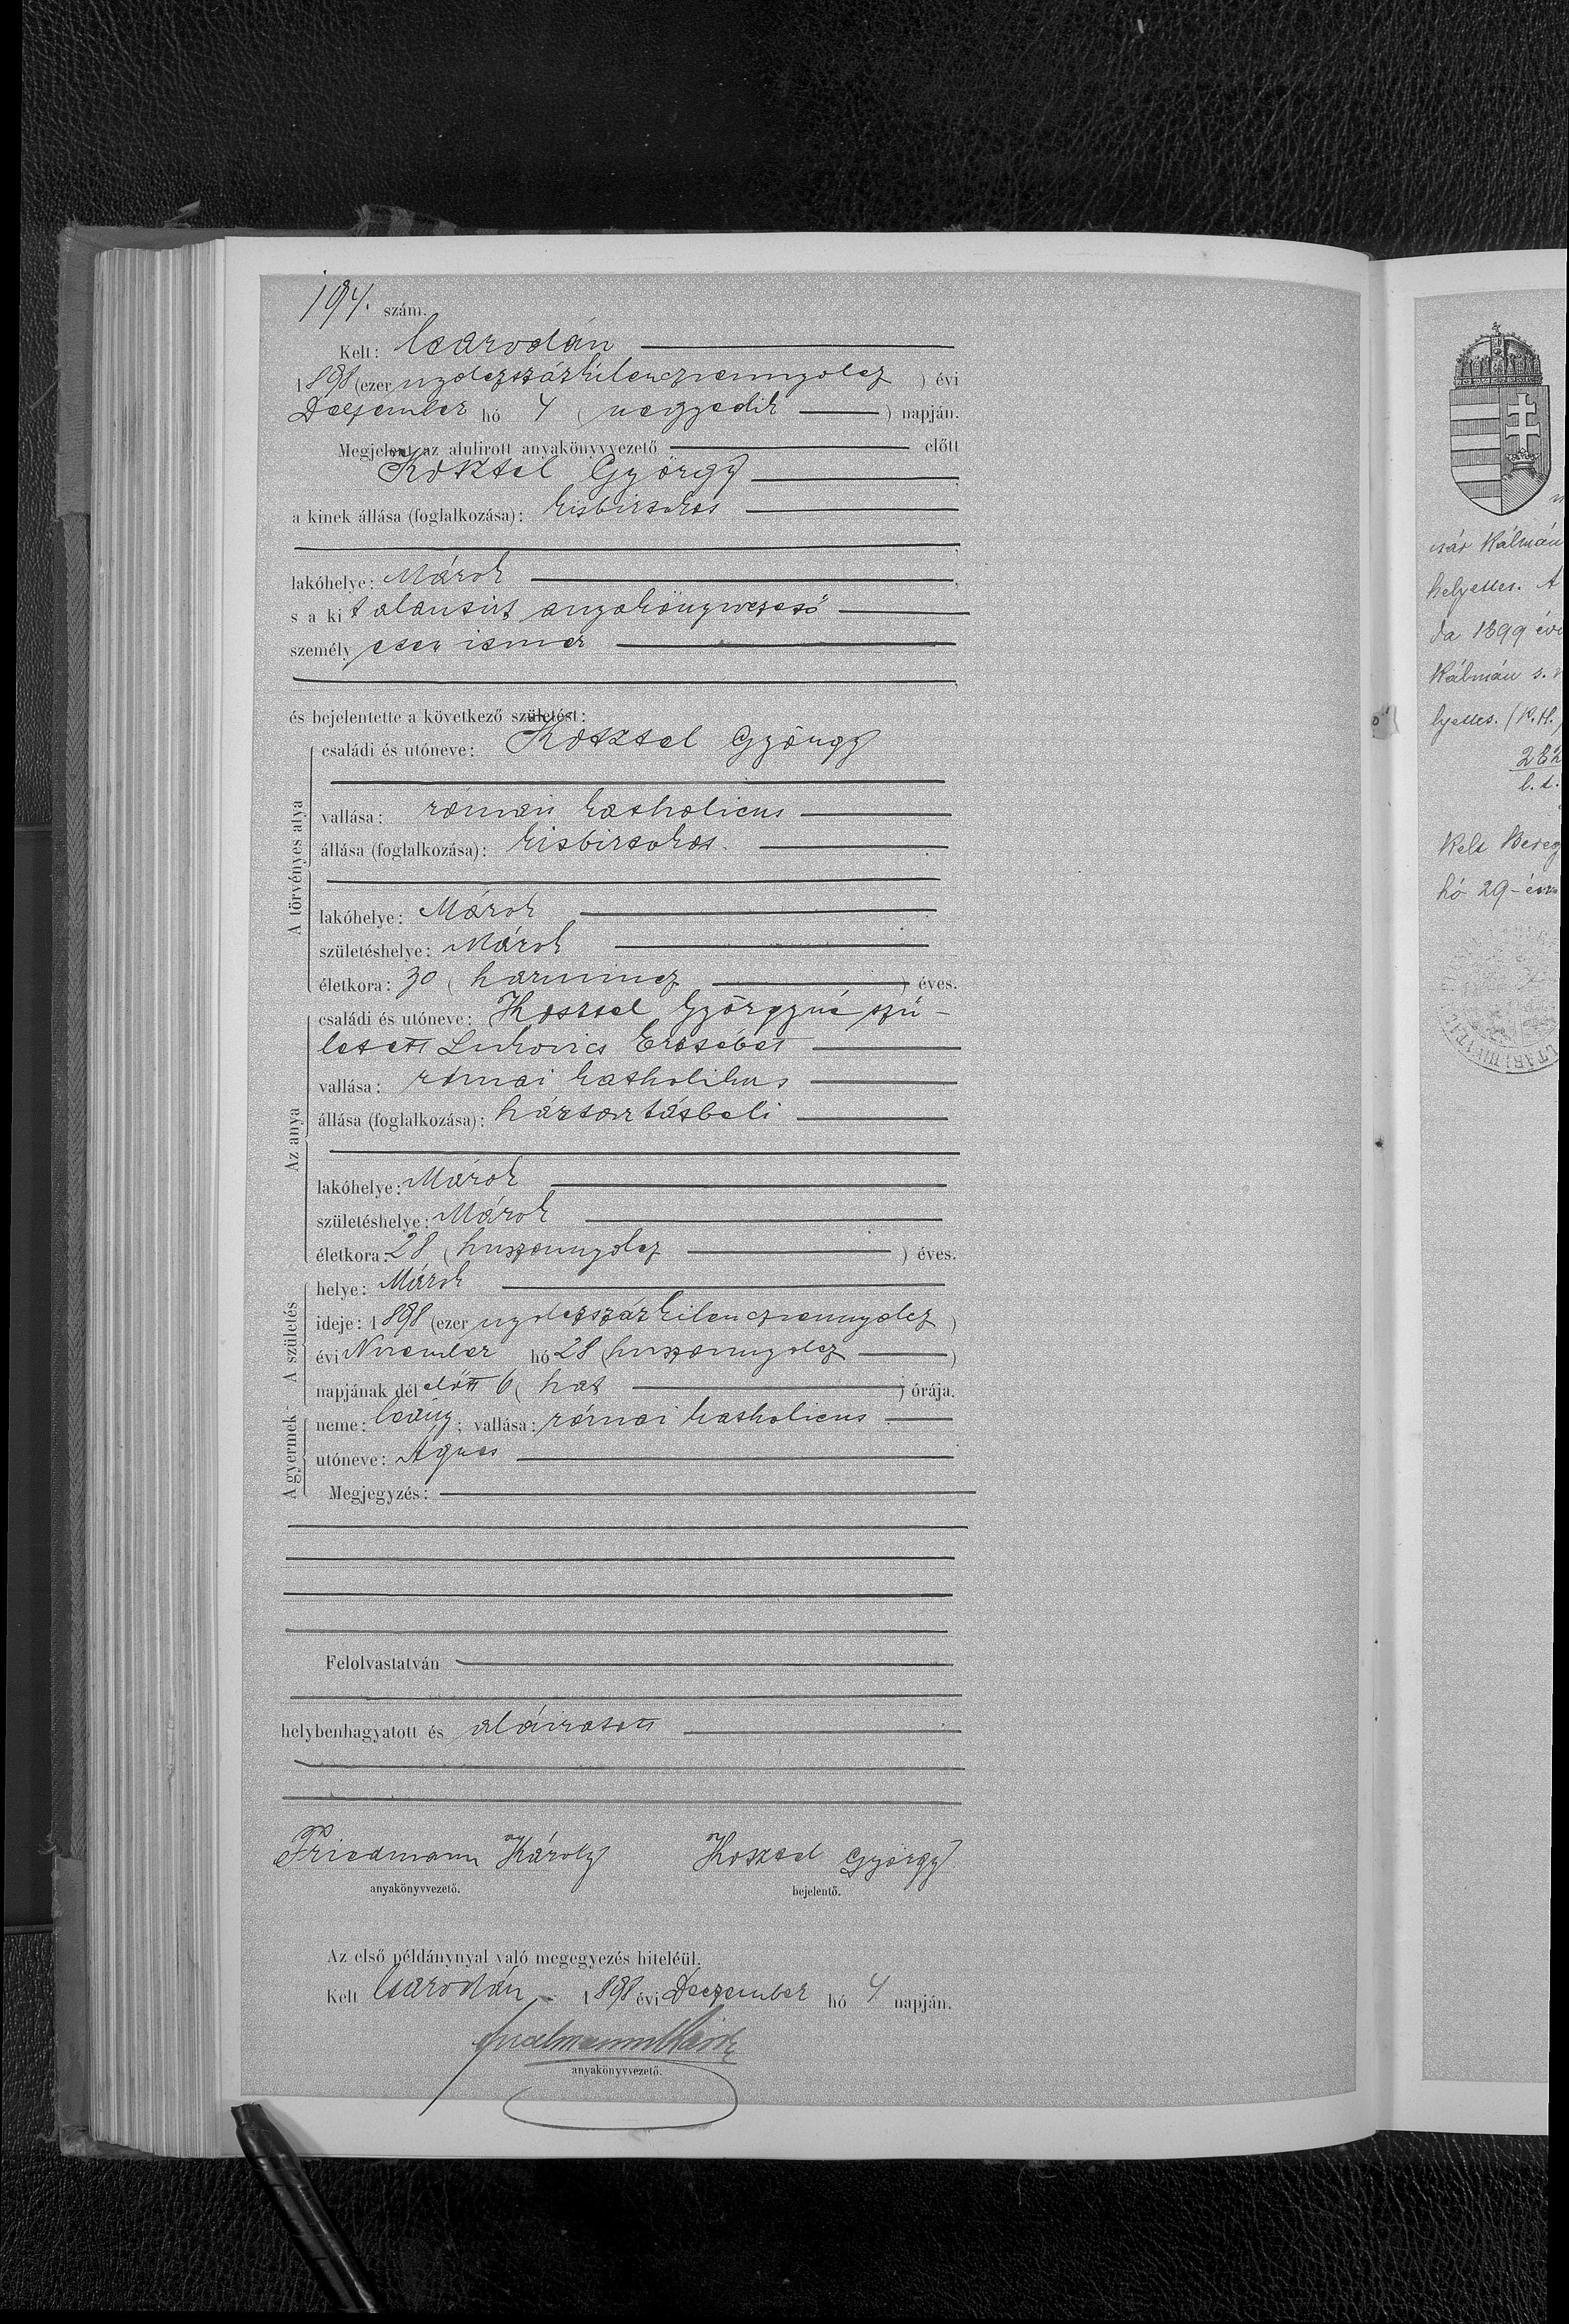 194. szám.
Kelt: Csarodán
1898 (ezer nyolczszázkilenczvennyolcz) évi
Deczember hó 4 (negyedik) napján.
Megjelent az alulirott anyakönyvvezető előtt
Kosztel György
a kinek állása (foglalkozása): kisbirtokos
lakóhelye: Márok
s a kit alantirt anyakönyvvezető
személyesen ismer
és bejelentette a következő születést:
A törvényes atya
családi és utóneve: Kosztel György
vallása: római katholicus
állása (foglalkozása): kisbirtokos.
lakóhelye: Márok
születéshelye: Márok
életkora: 30 (harmincz) éves.
Az anya
családi és utóneve: Kosztel Györgyné szü-
letett Lukovics Erzsébet
vallása: római katholikus
állása (foglalkozása): háztartásbeli
lakóhelye: Márok
születéshelye: Márok
életkora: 28 (huszonnyolcz) éves.
A születés
helye: Márok
ideje: 1898 (ezer nyolczszázkilenczvennyolcz)
évi November hó 28 (huszonnyolcz)
napjának dél előtt 6 (hat) órája.
A gyermek
neme: leány; vallása: római katholicus
utóneve: Agnes
Megjegyzés:
Felolvastatván
helybenhagyatott és aláiratott
Friedmann Károly Kosztel György
anyakönyvvezető. bejelentő.
Az első példánynyal való megegyezés hiteléül.
Kelt Csarodán 1898 évi Deczember hó 4 napján.
anyakönyvvezető.
Kálmán
helyettes. A
da 1899 évi
Kálmán s.
lyettes. (P.H.)
282
Kelt Bereg
hó 29-én